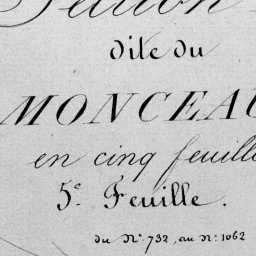 Section
dite du
MONCEAU
en cinq feuille
5e Feuille.
du No 732, au No 1062